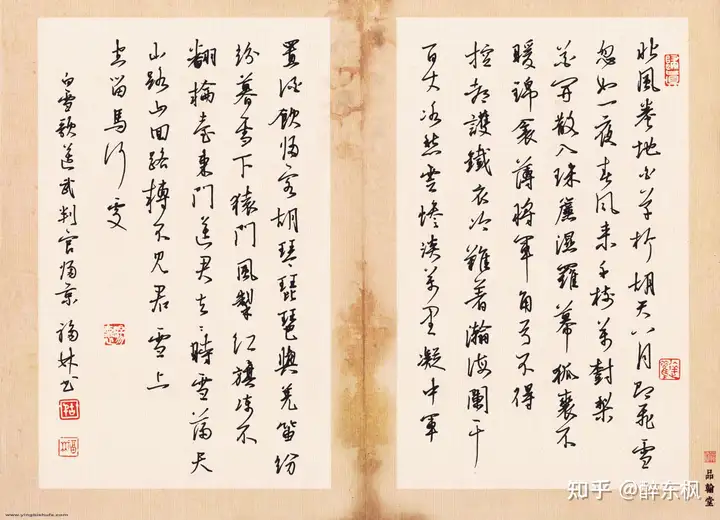 北風卷地白草折胡天八月即飛雪
忽如一夜春风来千树萬樹梨
花開散入珠簾濕羅幕狐裘不
暖錦衾薄將軍角弓不得
控都護鐵衣冷難着瀚海闌干
百丈冰愁雲惨淡萬里凝中軍
置酒飲归客胡琴琵琶與羌笛纷
纷暮雪下轅門風掣红旗凍不
翻輪臺東門送君去々時雪满天
山路山回路轉不见君雪上
空留馬行處
白雪歌送武判官归京 书
品翰堂
知乎 @醉东枫